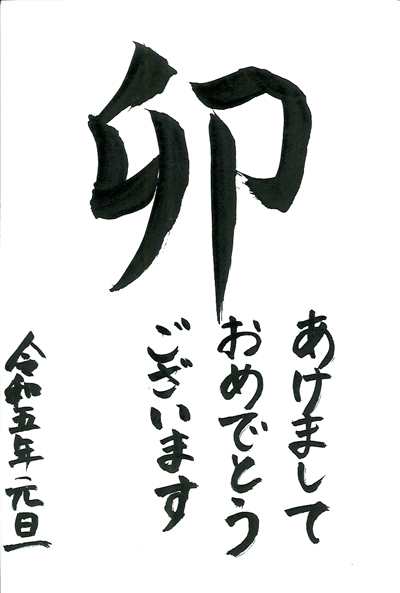 卯
あけまして
おめでとう
ございます
令和五年元旦